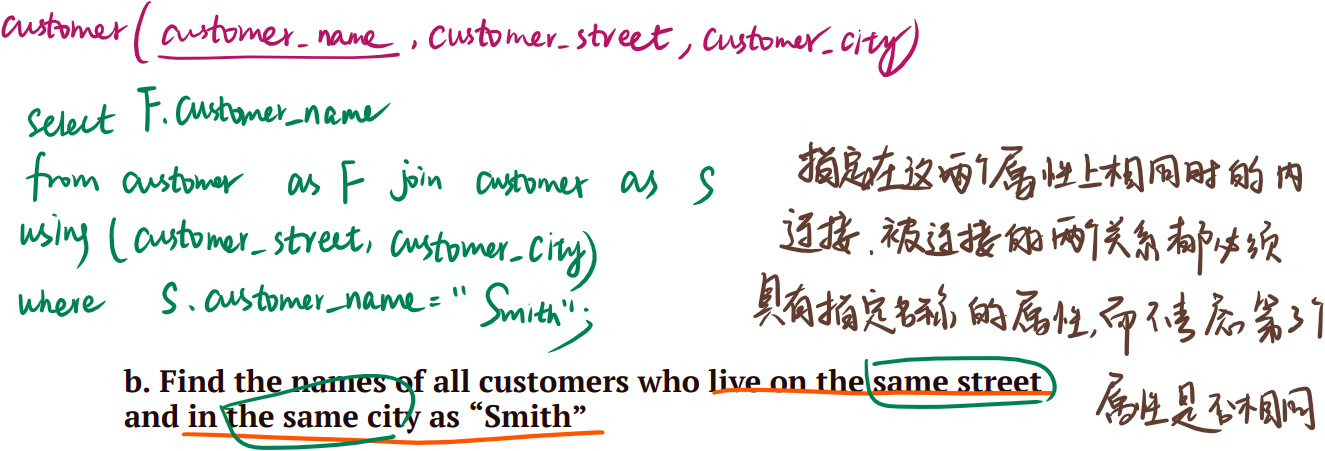 customer(customer_name, customer_street, customer_city)
select F.customer_name
from customer as F join customer as S
using (customer_street, customer_city)
where S.customer_name = "Smith";
指定在这两个属性上相同时的内
连接.被连接的两个关系都必须
具有指定名称的属性,而不考虑第3个
属性是否相同
b. Find the names of all customers who live on the same street
and in the same city as “Smith”